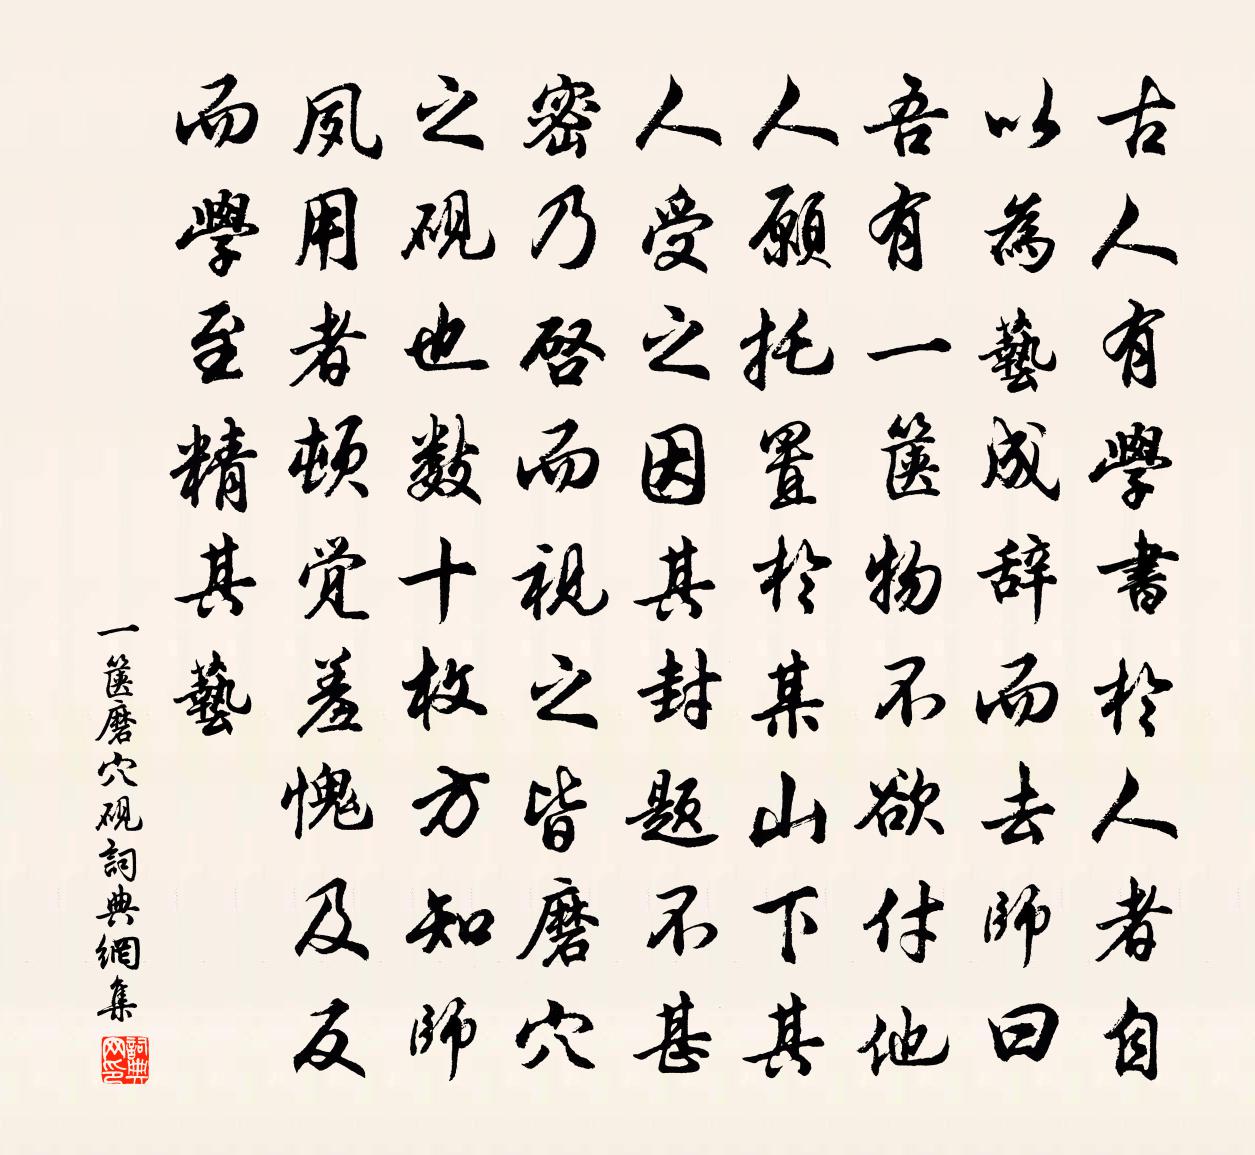 古人有學書於人者自
以為藝成辞而去師曰
吾有一箧物不欲付他
人願托置於某山下其
人受之因其封題不甚
密乃啓而視之皆磨穴
之硯也數十枚方知師
夙用者頓覚羞愧及反
而學至精其藝
一箧磨穴硯詞典網集
詞典网印